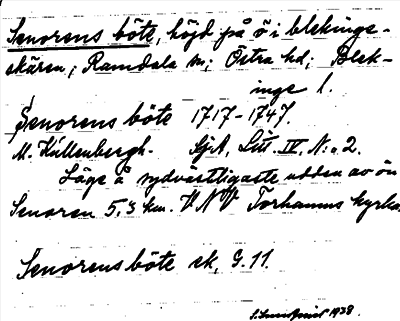 Senorens böte, höjd på ö i blekinge-
skären; Ramdala sn; Östra hd; Blek-
inge l.
Senorens böte 1717-1747.
M. Källenbergh. SjA, Litt. IV. N:o 2.
Läge å sydvästligaste udden av ön
Senoren 5,3 km. VNV Torhamns kyrka.
Senorensböte sk, G. 11.
1938.